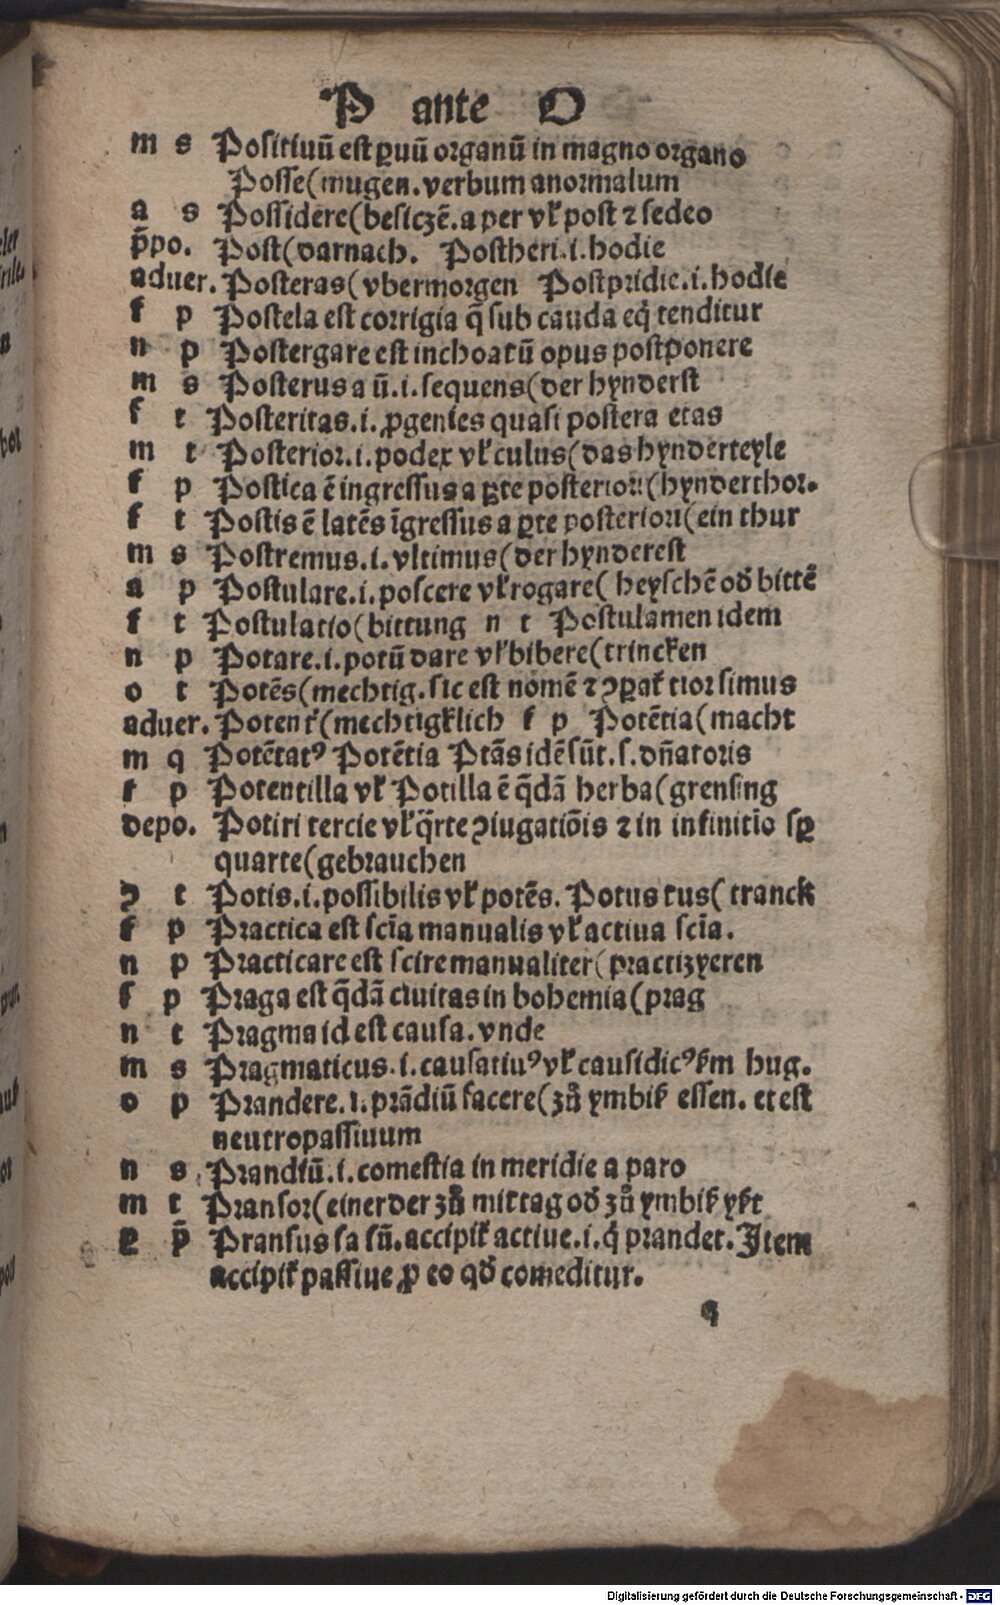 P ante O
m s Positiuū est ꝑuū organū in magno organo
Posse(mugen. verbum anormalum
a s Possidere(besiczē. a per vl̕ post ⁊ sedeo
p̄po. Post(darnach. Postheri .i. hodie
aduer. Posteras(vbermorgen Postpridie .i. hodie
f p Postela est corrigia q̄ sub cauda eq̇ tenditur
n p Postergare est inchoatū opus postponere
m s Posterus a ū .i. sequens(der hynderst
f t Posteritas .i. ꝓgenies quasi postera etas
m t Posterior .i. podex vl̕ culus(das hynderteyle
f p Postica ē ingressus a ꝑte posteriori(hynderthor.
f t Postis ē latēs īgressus a ꝑte posteriori(ein thur
m s Postremus .i. vltimus(der hynderest
a p Postulare .i. poscere vl̕ rogare(heyschē od̕ bittē
f t Postulatio(bittung n t Postulamen idem
n p Potare .i. potū dare vl̕ bibere(trincken
o t Potēs(mechtig. sic est nomē ⁊ ꝯꝑat̕ tior simus
aduer. Potent̕(mechtigklich f p Potētia(macht
m q Potētatꝰ Potētia Ptās idē sūt .s. dn̄atoris
f p Potentilla vl̕ Potilla ē q̄dā herba(grensing
depo. Potiri tercie vl̕ q̄rte ꝯiugatiōis ⁊ in infinitīo sꝑ
quarte(gebrauchen
ꝯ t Potis .i. possibilis vl̕ potēs. Potus tus(tranck
f p Practica est scīa manualis vl̕ actiua scīa.
n p Practicare est scire manualiter(practizyeren
f p Praga est q̄dā ciuitas in bohemia(prag
n t Pragma id est causa. vnde
m s Pragmaticus .i. causatiuꝰ vl̕ causidicꝰ ẜm hug.
o p Prandere .i. prādiū facere(zů ymbiß essen. et est
neutropassiuum
n s Prandiū .i. comestia in meridie a paro
m t Pransor(einer der zů mittag od̕ zů ymbiß yßt
ꝑ p̄ Pransus sa sū. accipit̕ actiue .i. q̇ prandet. Item
accipit̕ passiue ꝓ eo qd̕ comeditur.
q
Digitalisierung gefördert durch die Deutsche Forschungsgemeinschaft - DFG